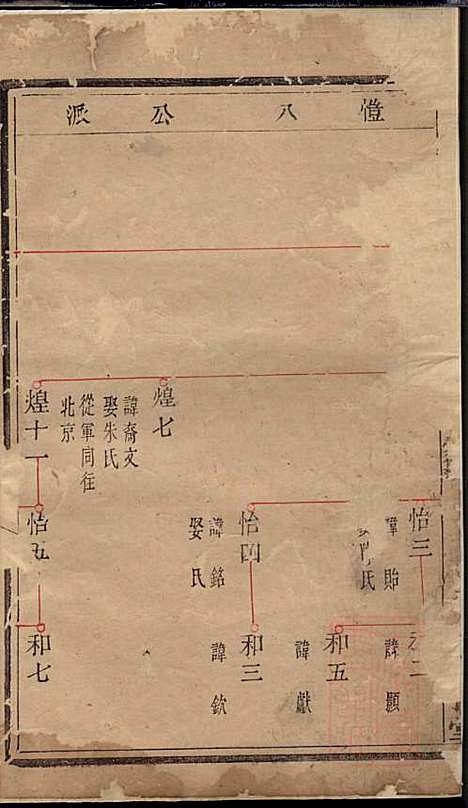 愷八公派
怡三
諱貽
氏
諱顯
和五
諱獻
怡四
諱銘
娶氏
和三
諱欽
煌七
諱裔文
娶朱氏
從軍同往
北京
煌十一
怡五
和七